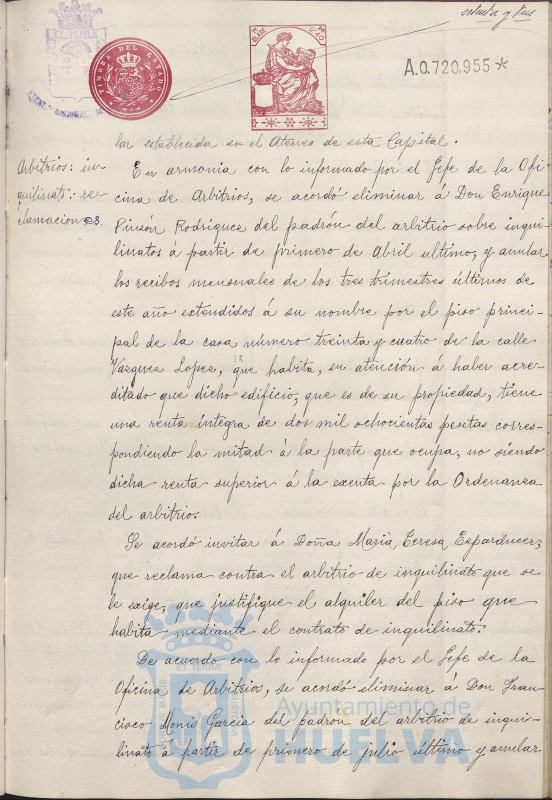 setenta y tres
EL TERRE
TIMBRE DEL ESTADO
A.0.720,955 *
lar establecida en el Ateneo de esta Capital.
Arbitrios: in-
quilinato: re-
clamaciones.
En armonia con lo informado por el Jefe de la Ofi-
cina de Arbitrios, se acordó eliminar á Don Enrique
Pinzón Rodríguez del padrón del arbitrio sobre inqui-
linatos á partir de primero de Abril ultimo, y anular
los recibos mensuales de los tres trimestres últimos de
este año extendidos á su nombre por el piso princi-
pal de la casa número treinta y cuatro de la calle
Vazquez Lopez, que habita, en atención á haber acre-
ditado que dicho edificio, que es de su propiedad, tiene
una renta íntegra de dos mil ochocientas pesetas corres-
pondiendo la mitad á la parte que ocupa, no siendo
dicha renta superior á la exenta por la Ordenanza
del arbitrio.
Se acordó invitar á Doña Maria Teresa Esparducer,
que reclama contra el arbitrio de inquilinato que se
le exige, que justifique el alquiler del piso que
habita mediante el contrato de inquilinato.
De acuerdo con lo informado por el Jefe de la
Oficina de Arbitrios, se acordó eliminar á Don Fran-
cisco Monís García del padrón del arbitrio de inqui-
linato á partir de primero de julio último y anular
Ayuntamiento de
HUELVA